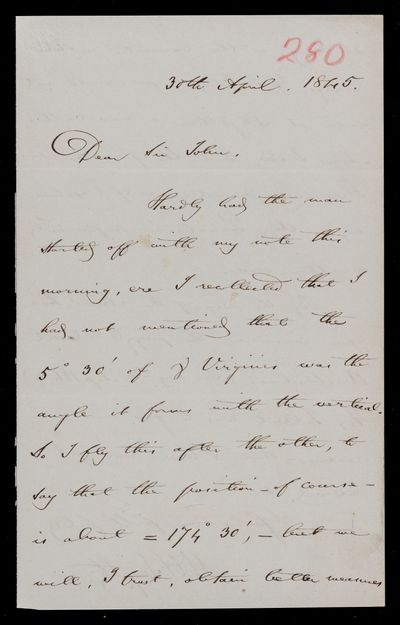 280
30th April. 1845.
Dear Sir John,
Hardly had the man
started off with my note this
morning, ere I recollected that I
had not mentioned that the
5° 30' of γ Virginis was the
angle it forms with the vertical.
So I fly this after the other, to
say that the position – of course –
is about = 174° 30', – but we
will, I trust, obtain better measures